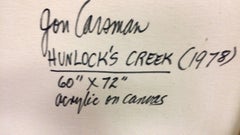 Jon Carsman
HUNLOCK'S CREEK (1978)
60" X 72"
acrylic on canvas